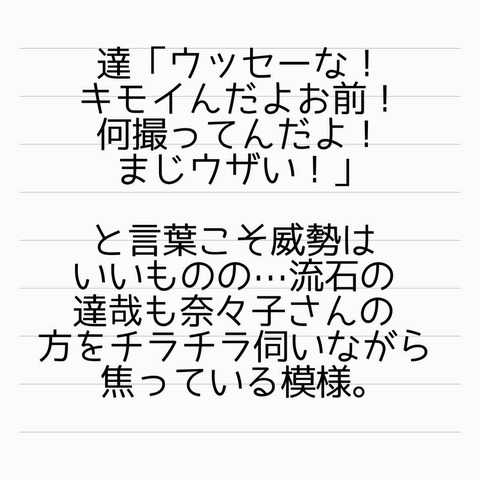 達「ウッセーな！
キモイんだよお前！
何撮ってんだよ！
まじウザい！」
と言葉こそ威勢は
いいものの…流石の
達哉も奈々子さんの
方をチラチラ伺いながら
焦っている模様。